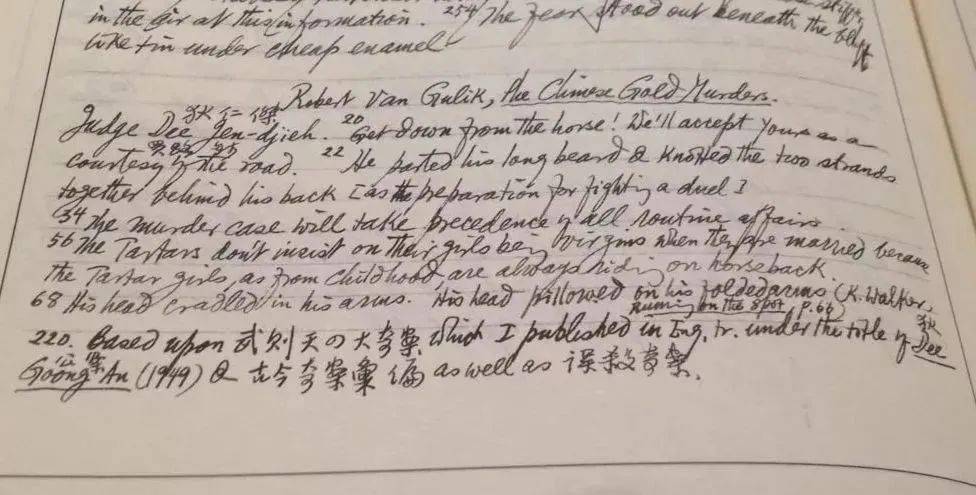 in the air at this information. 254 The fear stood out beneath the
like tin under cheap enamel
Robert Van Gulik, the Chinese Gold Murders.
狄仁傑
Judge Dee Jen-djieh. 20 Get down from the horse! We'll accept yours as a
courtesy of the road. 22 He parted his long beard & knotted the two strands
together behind his back [as the preparation for fighting a duel]
34 The murder case will take precedence of all routine affairs
56 The Tartars don't insist on their girls being virgins when they are married because
the Tartar girls, as from childhood, are always riding on horseback.
68 His head cradled in his arms. His head pillowed on his folded arms (K. Walker,
Running on the Spot p. 66)
狄
220. Based upon 武則天の大奇案 which I published in Eng. tr. under the title of Dee
公案
Goong An (1949) & 古今奇案彙編 as well as 誤殺奇案.